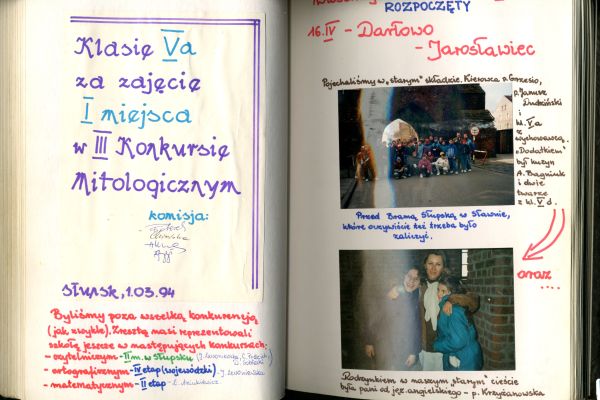 Klasie Va
za zajęcie
I miejsca
w III Konkursie
Mitologicznym
komisja:
Słupsk, 1.03.94
Byliśmy poza wszelką konkurencją
(jak zwykle). Zresztą nasi reprezentowali
szkołę jeszcze w następujących konkursach:
- czytelniczym - II m. w Słupsku
- ortograficznym - IV etap (wojewódzki)
- matematycznym - II etap -
ROZPOCZĘTY
16.IV - Darłowo
- Jarosławiec
Pojechaliśmy w „starym" składzie. Kierowca p. Grzesio,
p. Janusz
Dudziński
i
kl. Va
z
wychowawcą.
„Dodatkiem"
był kuzyn
A. Bagniuk
i dwie
twarze
z kl. Vd.
Przed Bramą Słupską w Sławnie,
które oczywiście też trzeba było
zaliczyć.
oraz
....
Rodzynkiem w naszym „starym" cieście
była pani od jęz. angielskiego - p. Krzyżanowska